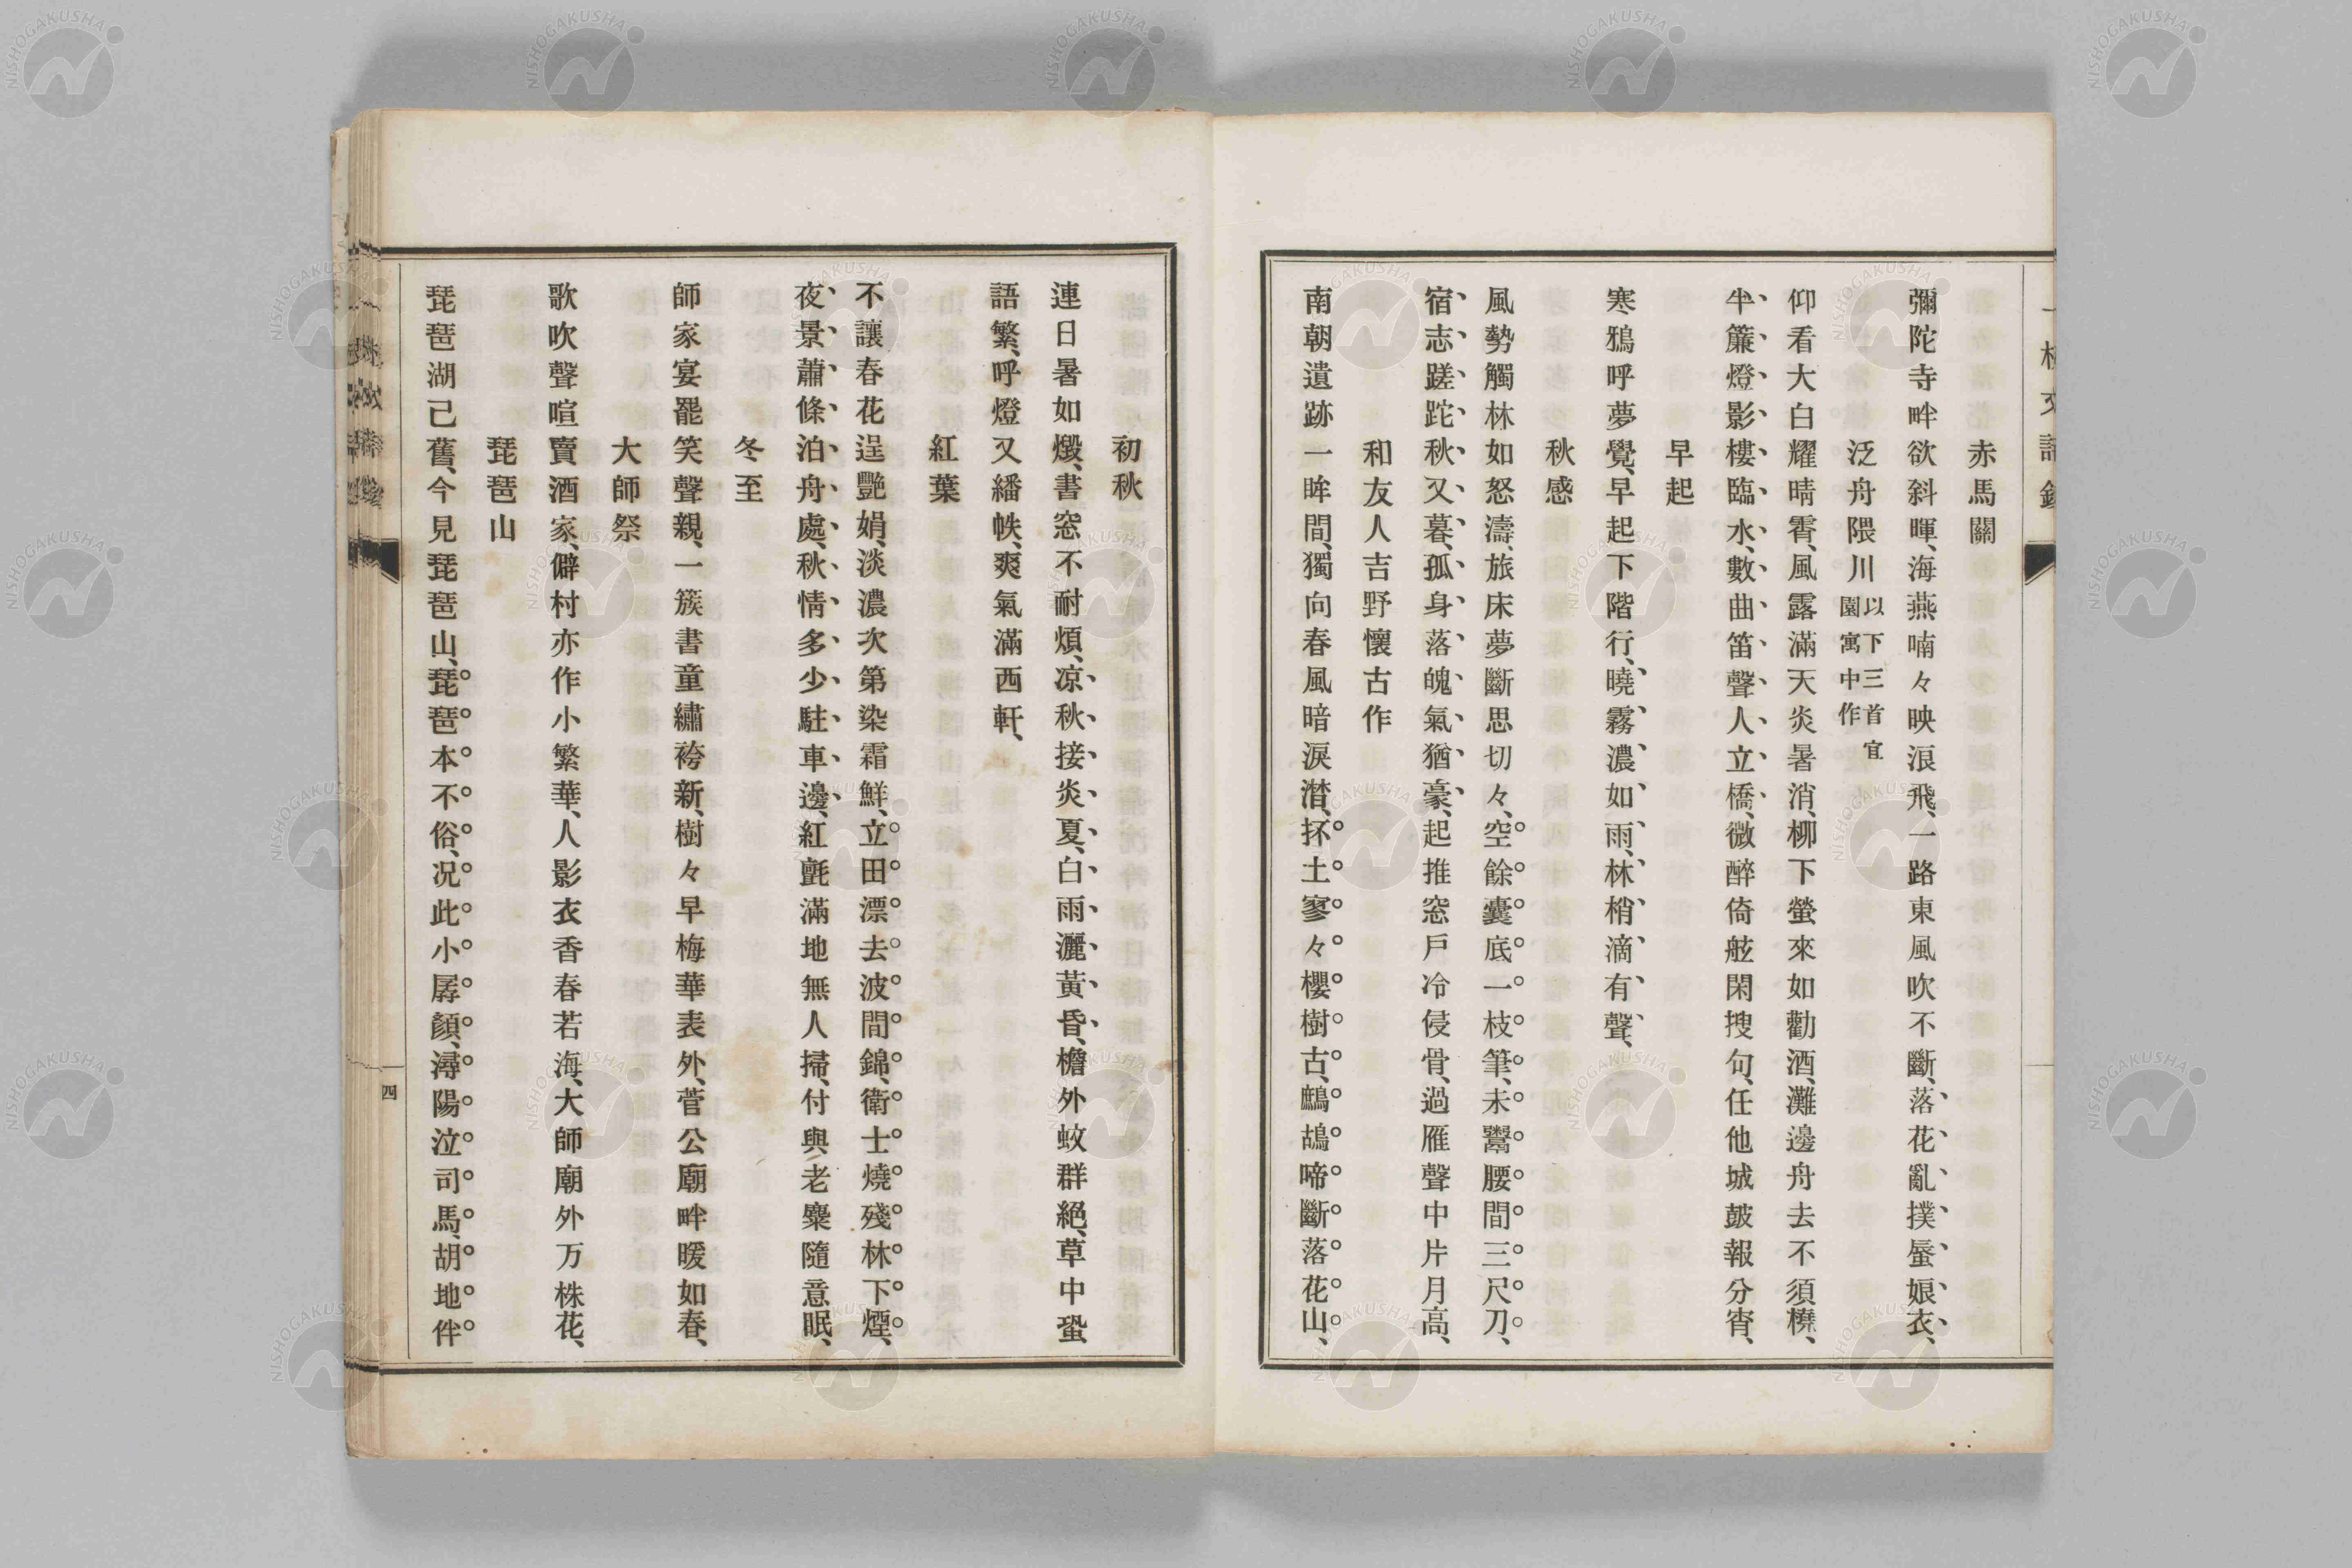 赤馬關
彌陀寺畔欲斜暉、海燕喃々映浪飛、一路東風吹不斷、落花亂撲蜑娘衣、
泛舟隈川 以下三首宜園寓中作
仰看大白耀晴霄、風露滿天炎暑消、柳下螢來如勸酒、灘邊舟去不須橈、
半簾燈影樓臨水、數曲笛聲人立橋、微醉倚舷閑搜句、任他城皷報分宵、
早起
寒鴉呼夢覺、早起下階行、曉霧濃如雨、林梢滴有聲、
秋感
風勢觸林如怒濤、旅床夢斷思切々、空餘囊底一枝筆、未鬻腰間三尺刀、
宿志蹉跎秋又暮、孤身落魄氣猶豪、起推窓戶冷侵骨、過雁聲中片月高、
和友人吉野懷古作
南朝遺跡一眸間、獨向春風暗淚潸、抔土寥々櫻樹古、鷓鴣啼斷落花山、
初秋
連日暑如燬、書窓不耐煩、凉秋接炎夏、白雨灑黃昏、檐外蚊群絕、草中蛩
語繁、呼燈又繙帙、爽氣滿西軒、
紅葉
不讓春花逞艷娟、淡濃次第染霜鮮、立田漂去波間錦、衛士燒殘林下煙、
夜景蕭條泊舟處、秋情多少駐車邊、紅氈滿地無人掃、付與老麋隨意眠、
冬至
師家宴罷笑聲親、一簇書童繡袴新、樹々早梅華表外、菅公廟畔暖如春、
大師祭
歌吹聲喧賣酒家、僻村亦作小繁華、人影衣香春若海、大師廟外万株花、
琵琶山
琵琶湖己舊、今見琵琶山、琵琶本不俗、况此小孱顏、潯陽泣司馬、胡地伴
四